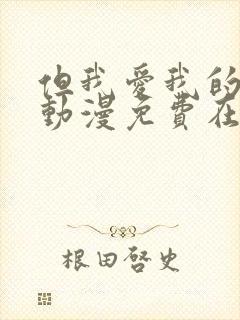 但我爱我的
動漫免費在
根田啓史